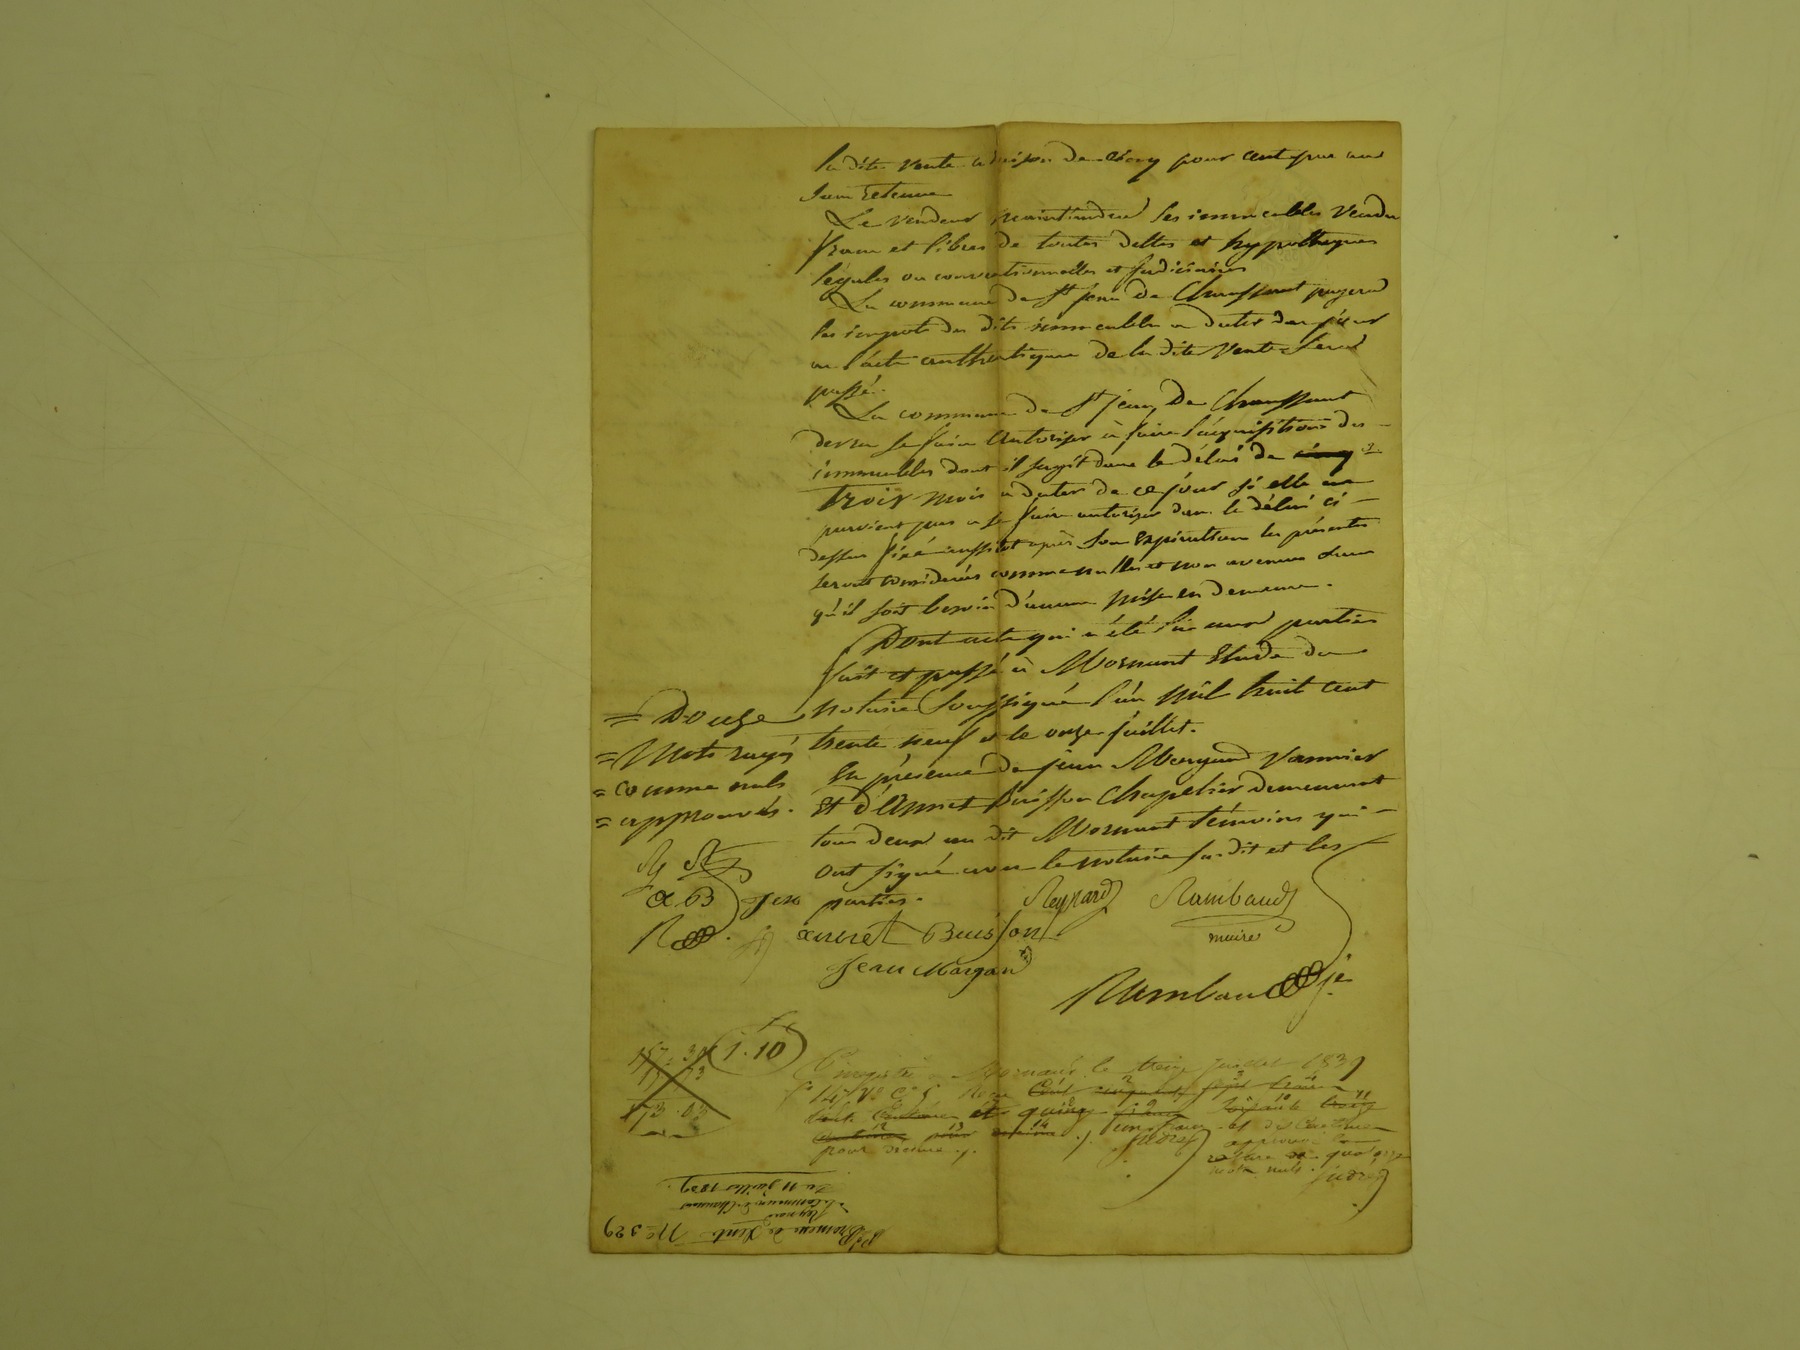 la dite vente a raison de cinq pour cent par an
sans retenue
Le vendeur maintiendra les immeubles vendu
franc et libres de toutes dettes et hypotheques
légales ou conventionnelles et judiciaires
La commune de St jean De Chaussant payera
les impots des dits immeubles a dater du jour
ou l'acte authentique de la dite vente sera
passé.
La commune de St jean De Chaussant
devra se faire autoriser à faire l'acquisition des
immeubles dont il s'agit dans le délai de cinq
trois mois a dater de ce jour si elle ne
parvient pas a se faire autoriser dans le délai ci-
dessus fixé aussitot après son expiration les présentes
seront considerées comme nulles et non avenues sans
qu'il soit besoin d'aucune mise en demeure.
Dont acte qui a été lu aux parties
fait et passé à Mornant Etude du
notaire soussigné l'an mil huit cent
trente neuf et le onze juillet.
En présence de jean Morgand vannier
Et d'Annet Buisson Chapelier demeurant
tous deux au dit Mornant témoins qui
ont signé avec le notaire susdit et les
parties.
= Douze
= Mots rayés
= comme nuls
= approuvés.
a B
Reynard Rambaud
maire
annet Buisson
Jean Morgan
Rambaud
157. 30
173. 03
1.10
Enregistré à Mornant le treize juillet 1839
f° 147 V° C. 5 Reçu
et quinze
un franc et dix centimes
pour décime
approuvé
mots nuls.
du 11 juillet 1839.
Reynard
Promesse de Vente N° 329